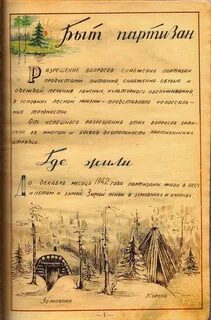 Быт партизан
Разрешение вопросов снабжения партизан
продуктами питания снабжения обувью и
одеждой, лечения раненых, культурного обслуживания
в условиях лесной жизни – представляло колоссаль-
ные трудности.
От успешного разрешения этих вопросов зави-
село во многом и боевая деятельность партизанских
отрядов.
Где жили
До декабря месяца 1942 года партизаны жили в лесу
и летом и зимой. Зимой жили в землянках и куренях.
Землянка
Курень
- 1 -